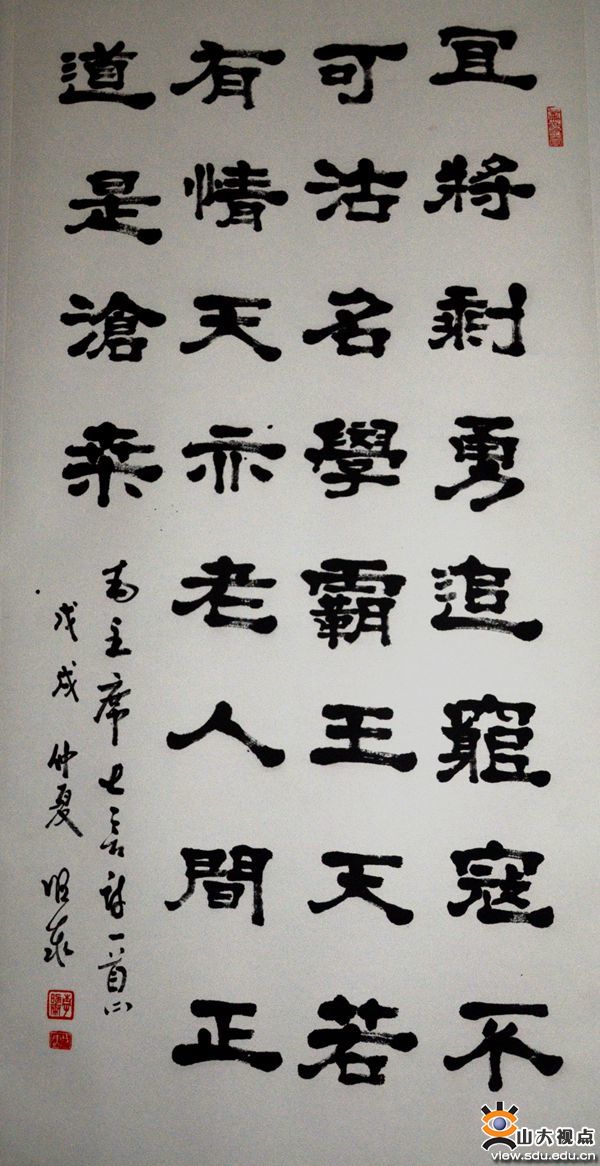 宜將剩勇追窮寇不
可沽名學霸王天若
有情天亦老人間正
道是滄桑
毛主席七言詩一首
戊戌仲夏
山大视点
view.sdu.edu.cn